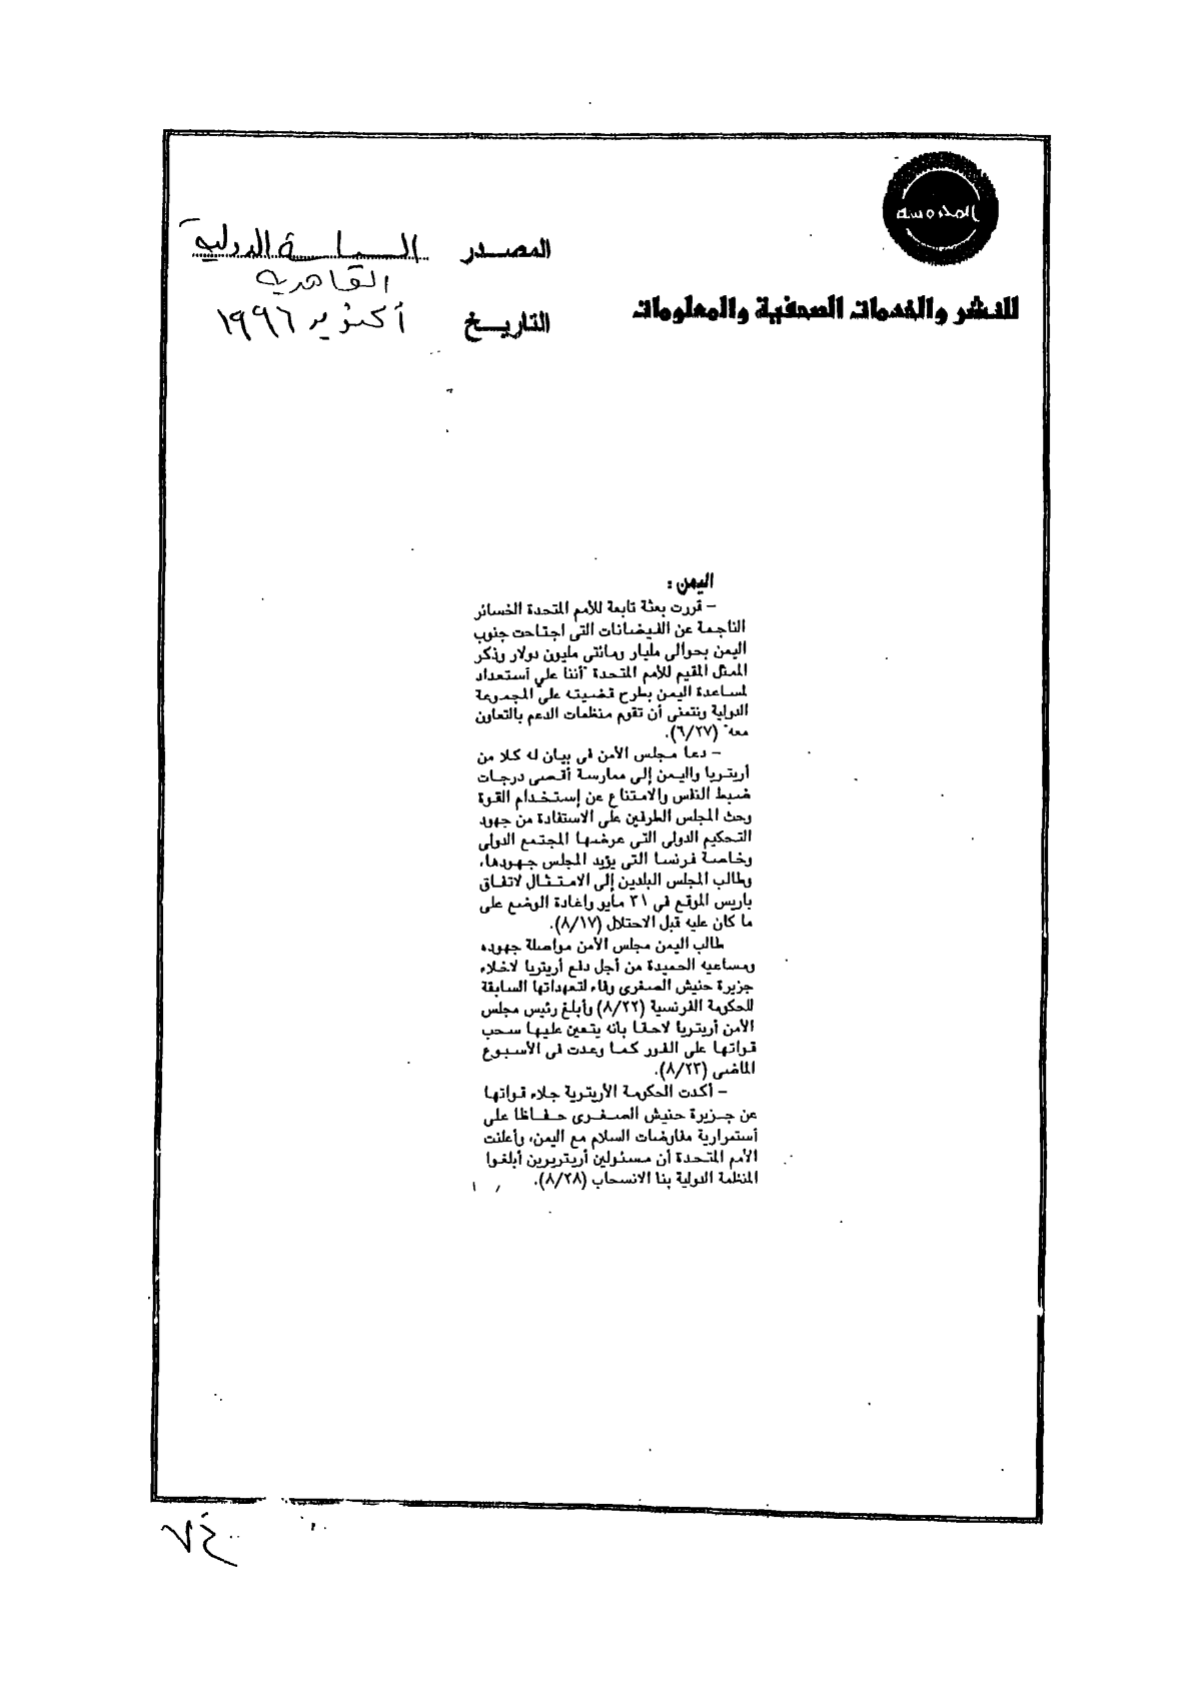 المحروسة
للنشر والخدمات الصحفية والمعلومات
المصدر السياسة الدولية
القاهرية
التاريخ أكتوبر ١٩٩٦
اليمن :
– قررت بعثة تابعة للأمم المتحدة الخسائر
الناجمة عن الفيضانات التى اجتاحت جنوب
اليمن بحوالى مليار ومائتى مليون دولار وذكر
الممثل المقيم للأمم المتحدة "أننا علي أستعداد
لمساعدة اليمن بطرح قضيته على المجموعة
الدولية ونتمنى أن تقوم منظمات الدعم بالتعاون
معه" (٦/٢٧).
– دعا مجلس الأمن فى بيان له كلا من
أريتريا واليمن إلى ممارسة أقصى درجات
ضبط النفس والامتناع عن إستخدام القوة
وحث المجلس الطرفين على الاستفادة من جهود
التحكيم الدولى التى عرضها المجتمع الدولى
وخاصة فرنسا التى يؤيد المجلس جهودها،
وطالب المجلس البلدين إلى الامتثال لاتفاق
باريس الموقع فى ٣١ مايو وإعادة الوضع على
ما كان عليه قبل الاحتلال (٨/١٧).
طالب اليمن مجلس الأمن مواصلة جهوده
ومساعيه الحميدة من أجل دفع أريتريا لاخلاء
جزيرة حنيش الصغرى وفاء لتعهداتها السابقة
للحكومة الفرنسية (٨/٢٢) وأبلغ رئيس مجلس
الأمن أريتريا لاحقا بانه يتعين عليها سحب
قواتها على الفور كما وعدت فى الأسبوع
الماضى (٨/٢٣).
– أكدت الحكومة الأريترية جلاء قواتها
عن جزيرة حنيش الصغرى حفاظا على
أستمرارية مفاوضات السلام مع اليمن، وأعلنت
الأمم المتحدة أن مسئولين أريتريين أبلغوا
المنظمة الدولية بنا الانسحاب (٨/٢٨).
٧٤